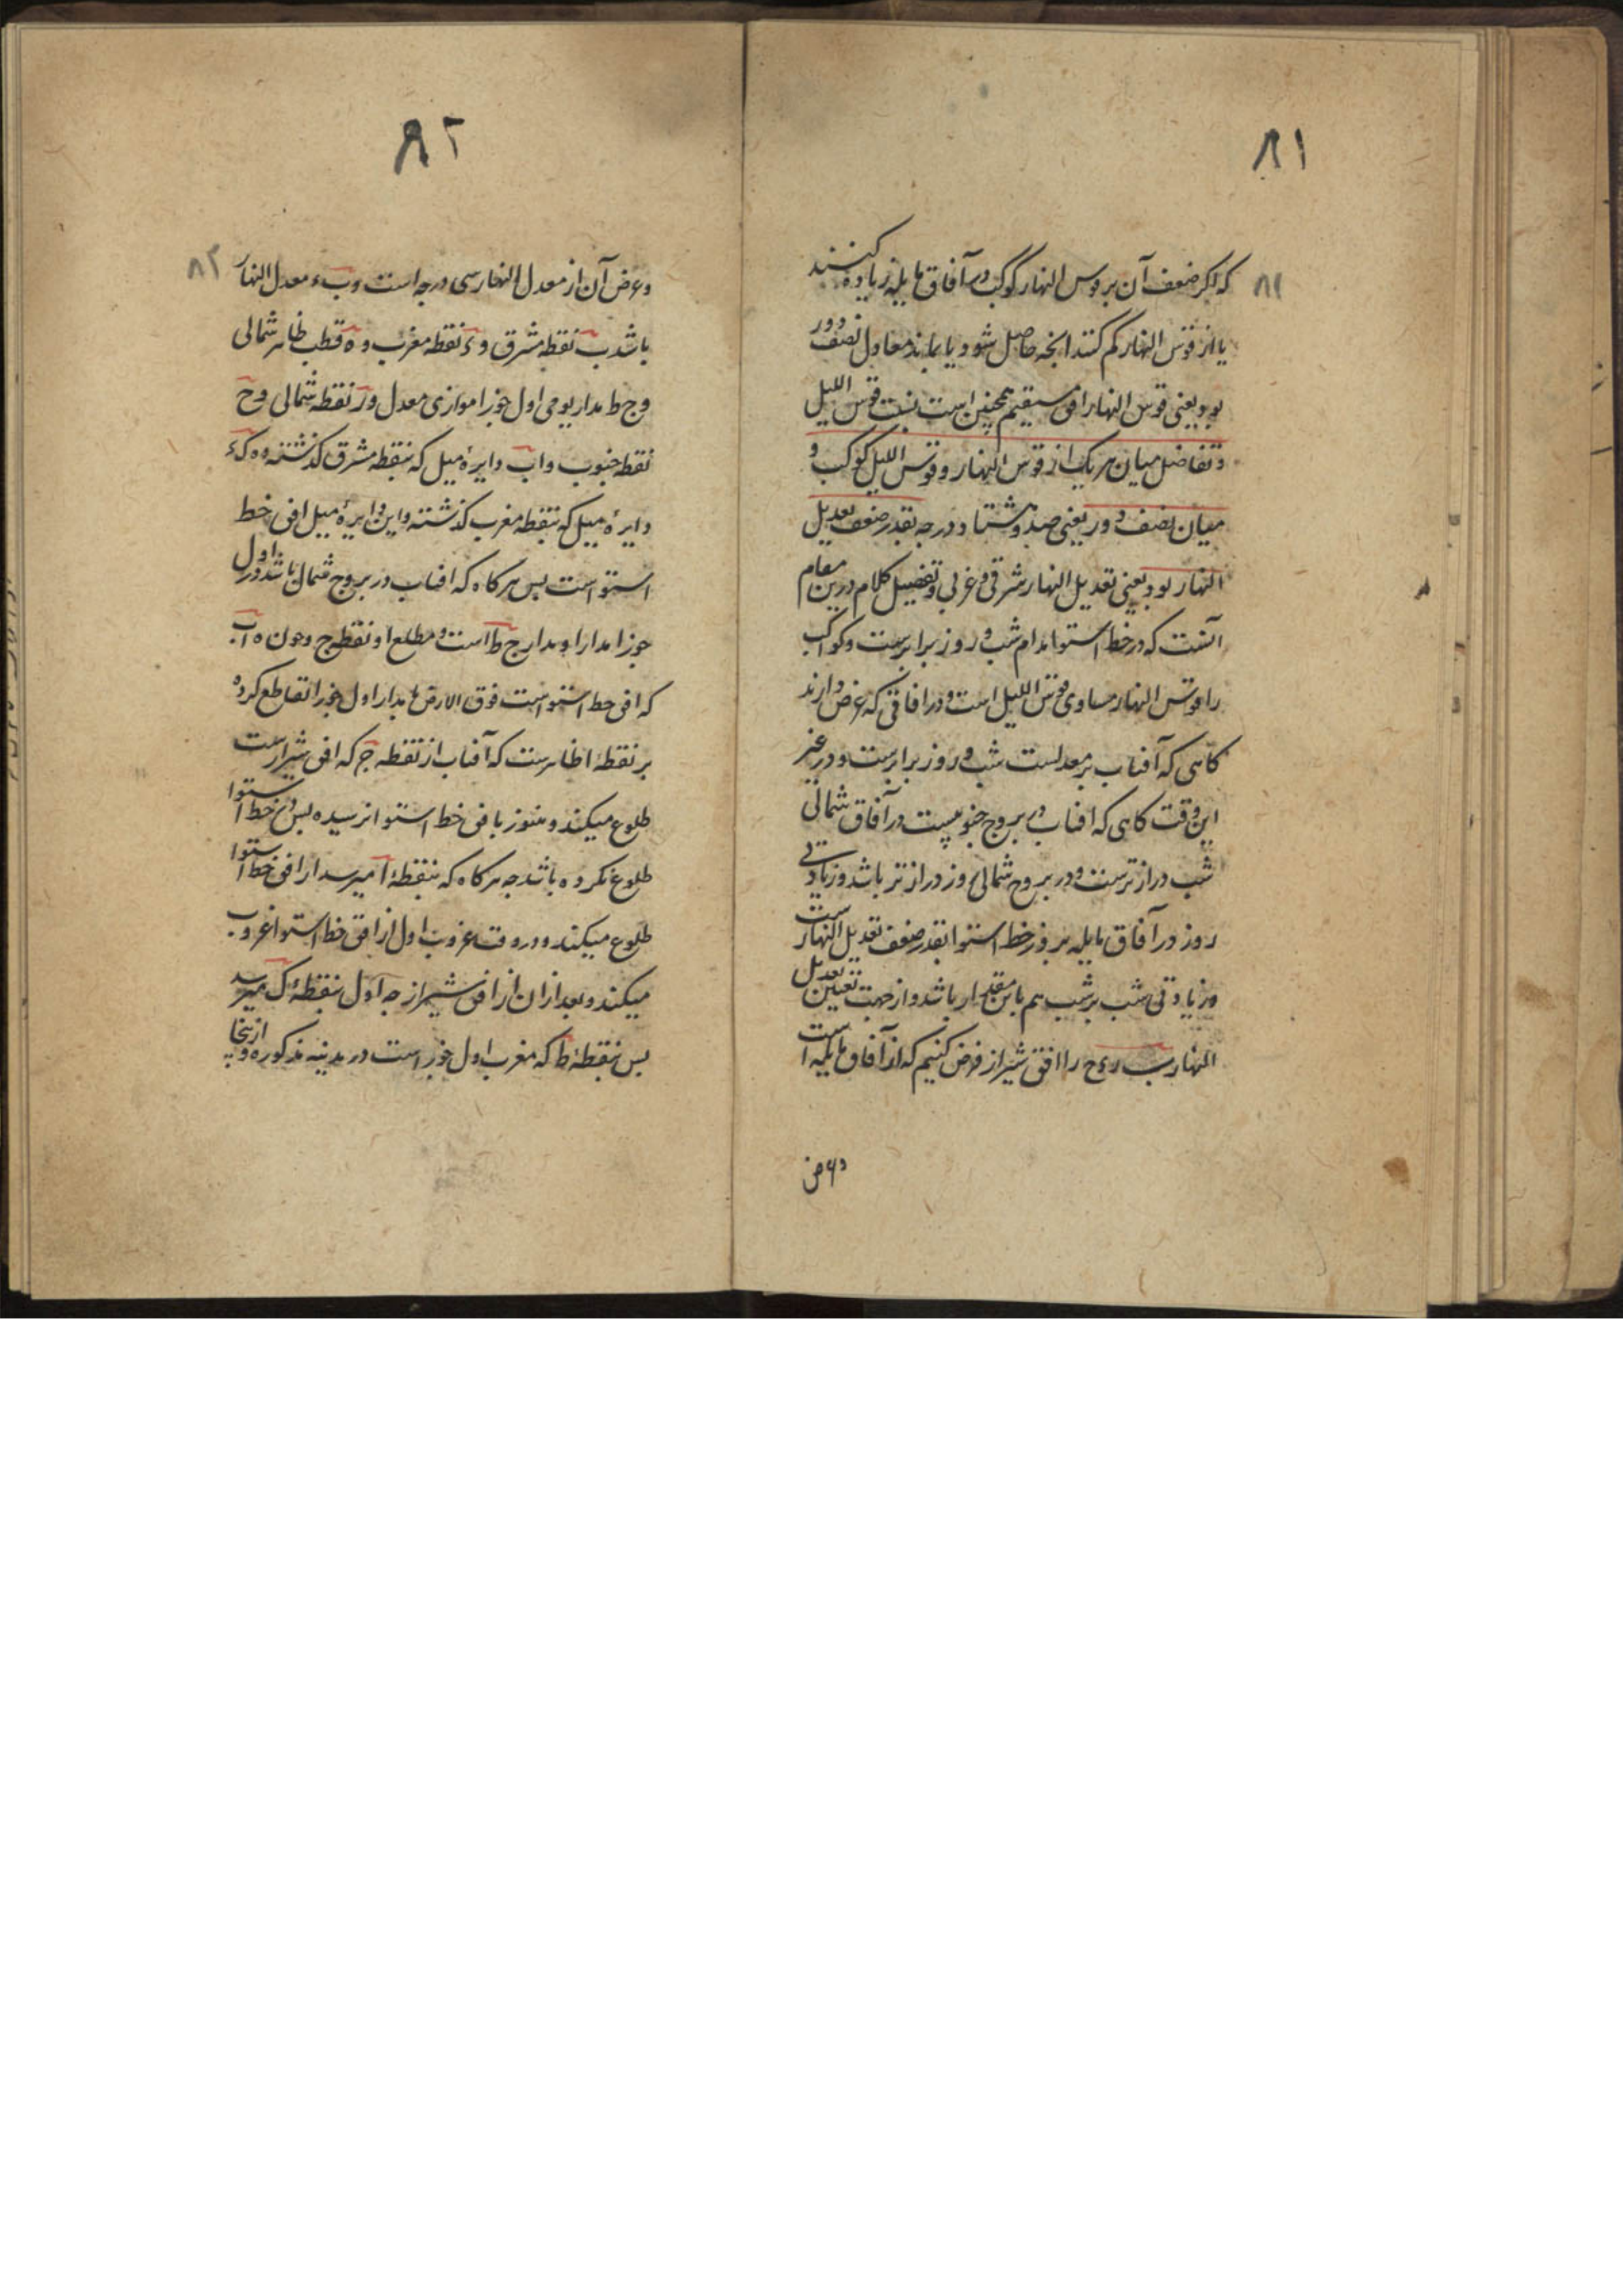 ۸۱
۸۱
که اگر ضعف آن بر قوس النهار کوکب در آفاق مایله زیاده کنند
یا از قوس النهار کم کنند انچه حاصل شود یا بماند معاول نصف دور
بود یعنی قوس النهار افق مستقیم همچنین است نسبت قوس اللیل
و تفاضل میان هر یک از قوس النهار و قوس اللیل کوکب و
میان نصف دور یعنی صد و هشتاد درجه بقدر ضعف تعدیل
النهار بود یعنی تعدیل النهار شرقی و غربی و تفصیل کلام درین مقام
آنست که در خط استوا مدام شب و روز برابرست و کواکب
را قوس النهار مساوی قوس اللیل است و در افاقی که عرض دارند
کاهی که آفتاب بر معدلست شب و روز برابرست و در غیر
این وقت کاهی که افتاب در بروج جنوبیست در آفاق شمالی
شب درازترست و در بروج شمالی روز درازتر باشد و زیادتی
روز در آفاق مایله بر روز خط استوا بقدر ضعف تعدیل النهار ست
و زیادتی شب بر شب هم باین مقدار باشد و از جهت تعیین تعدیل
النهار ب ر ء ح را افق شیراز فرض کنیم که از آفاق مایله است
وعرض
۸۲
۸۲
وعرض آن از معدل النهار سی درجه است و ب ء معدل النهار
باشد ب نقطه مشرق و ء نقطه مغرب و ه قطب ظاهر شمالی
و ج ط مدار یومی اول جوزا موازی معدل و ر نقطه شمالی و ح
نقطه جنوب و ا ب دایره میل که بنقطه مشرق کذشته و ه ک ء
دایره میل که بنقطه مغرب کذشته و این دایره میل افق خط
استوا است بس هرکاه که افتاب در بروج شمالی باشد و در اول
جوزا مدار او مدار ج ط است و مطلع او نقطه ج و چون ه ا ب
که افق خط استوا است فوق الارض با مدار اول جوزا تقاطع کرده
بر نقطه ا ظاهرست که آفتاب از نقطه ج که افق شیراز ست
طلوع میکند و هنوز بافق خط استوا نرسیده بس در خط استوا
طلوع نکرده باشد چه هرکاه که بنقطه ا میرسد از افق خط استوا
طلوع میکند و در وقت غروب اول از افق خط استوا غروب
میکند و بعد از ان از افق شیراز چه اول بنقطه ک میرسد
بس بنقطه ط که مغرب اول جوزا است در مدینه مذکوره و ازینجا